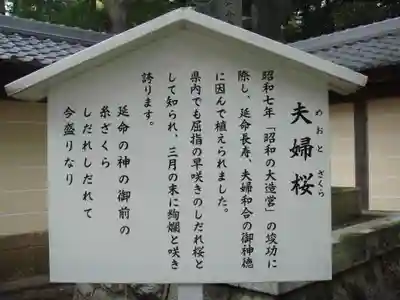 夫婦桜
めおとざくら
昭和七年「昭和の大造営」の竣功に
際し、延命長寿、夫婦和合の御神徳
に因んで植えられました。
県内でも屈指の早咲きのしだれ桜と
して知られ、三月の末に絢爛と咲き
誇ります。
延命の神の御前の
糸ざくら
しだれしだれて
今盛りなり